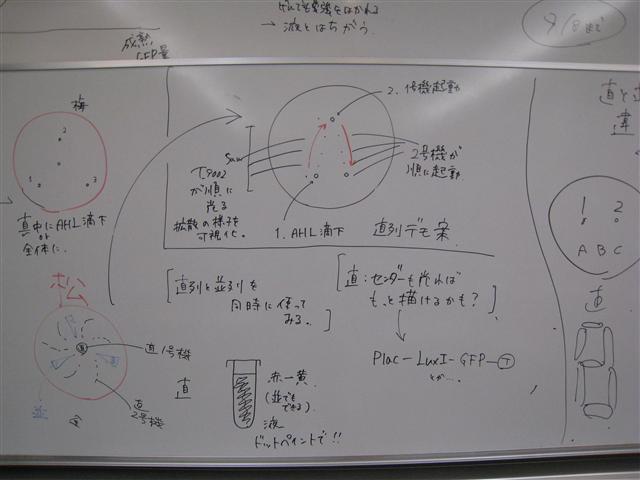 液とはちがう
成熟
GFP量
9/8まで
梅
2
1
3
真中にAHL滴下
or
全体に.
2. 1号機起動
5cm
T9002
が順に
光る
拡散の様子を
可視化。
2号機が
順に起動
1. AHL滴下
直列デモ案
1 2
A B C
直
松
直1号機
直
2号機
並
直列と並列を
同時に使って
みる。
直:センサーも光れば
もっと描けるかも?
Plac-LuxI-GFP-T
とか…
直
赤-黄
(並でも
できる)
液
ドットペイントで!!